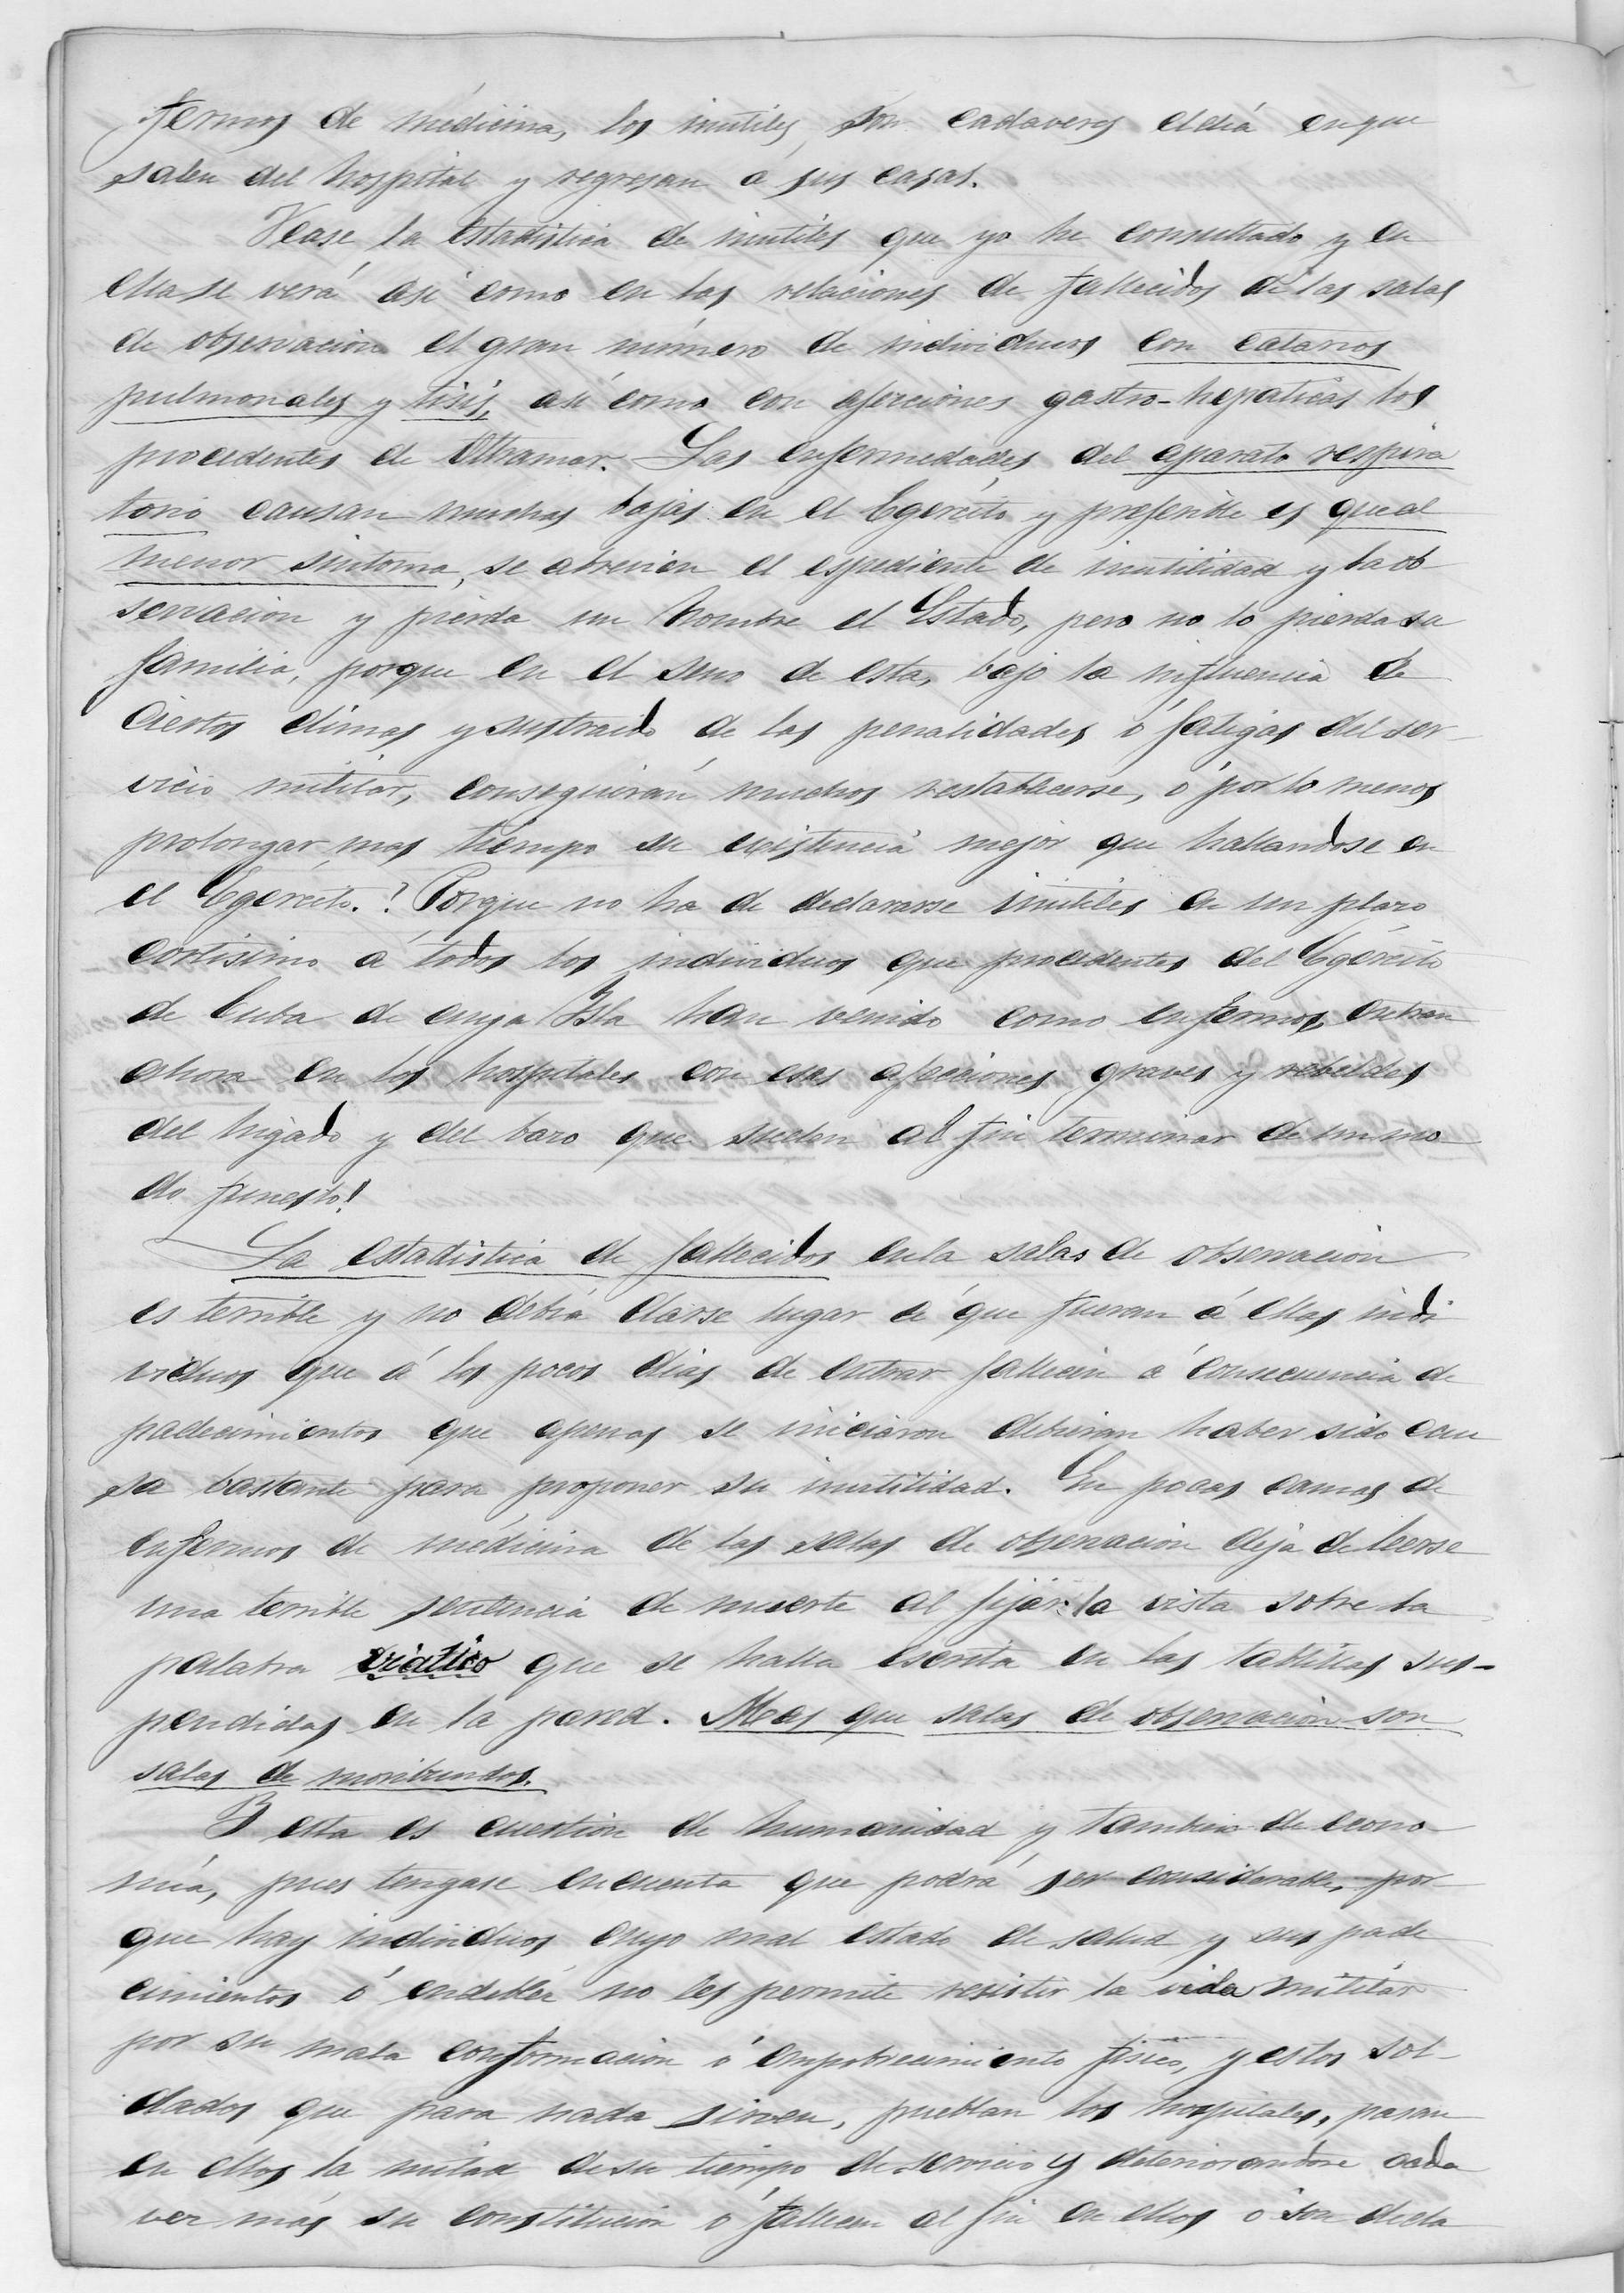 fermos de médicina, los inutiles, son cadaveres eldiá enque
salen del hospital y regresan á sus casas.
Vease la estadistica de inutiles que yo he consultado y en
ella se verá asi como en las relaciones de fallecidos de las salas
de observacion el gran número de individuos con catarros
pulmonales y tisis, asi como con afecciones gastro-hepaticas los
procedentes de Ultramar. Las enfermedades del aparato respira
torio causan muchas bajas en el Egército y preferible es que al
menor sintoma, se abrevien el espediente de inutilidad y la ob
servacion y pierda un hombre el Estado, pero no lo pierda su
familia, porque en el seno de esta, bajo la influencia de
ciertos climas y sustraido de las penalidades ó fatigas del ser-
vicio militar, conseguirán muchos restablecerse, ó por lo menos
prolongar mas tiempo su existencia mejor que hallandose en
el Egército.? Porque no ha de declararse inutiles en un plazo
cortisimo á todos los individuos que procedentes del Egército
de Cuba de cuya Isla han venido como enfermos, entran
ahora en los hospitales con esas afecciones graves y rebeldes
del higado y del bazo que suelen al fin terminar de un mo
do funesto!
La estadistica de fallecidos enla salas de observacion
es terrible y no debia darse lugar á que fueran á ellas indi
viduos que á los pocos dias de entrar fallecen á consecuencia de
padecimientos que apenas se iniciaron debieran haber sido cau
sa bastante para proponer su inutilidad. En pocas camas de
enfermos de médicina de las salas de observacion deja de leerse
una terrible sentencia de muerte al fijar la vista sobre la
palabra viatico que se halla escrita en las tablillas sus-
pendidas en la pared. Mas que salas de observacion son
salas de moribundos.
Y esta es cuestion de humanidad y tambien de econo
mia, pues tengase encuenta que podrá ser considerable, por
que hay individuos cuyo mal estado de salud y sus pade
cimientos ó endeblez no les permite resistir la vida militar
por su mala conformacion ó empobrecimiento fisico, y estos sol-
dados que para nada sirven, pueblan los hospitales, pasan
en ellos la mitad desu tiempo de servicio y deteriorandose cada
vez más su constitucion ó fallecen al fin en ellos ó son decla